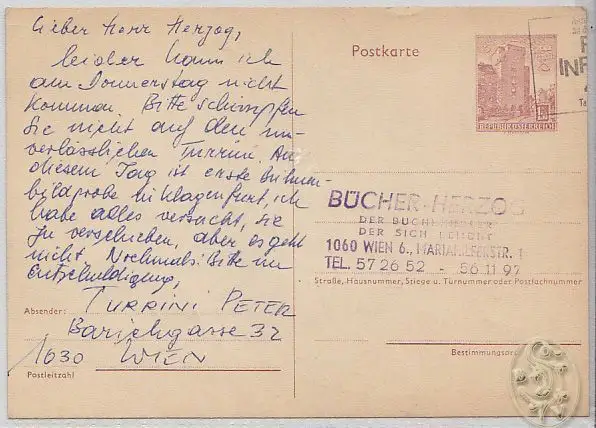 Lieber Herr Herzog,
leider kann ich
am Donnerstag nicht
kommen. Bitte schimpfen
Sie nicht auf den un-
verlässlichen Turrini. An
diesem Tag ist erste Bühnen-
bildprobe in Klagenfurt, ich
habe alles versucht, sie
zu verschieben, aber es geht
nicht. Nochmals: Bitte um
Entschuldigung,
Absender: TURRINI PETER
Barichgasse 32
1030 WIEN
Postleitzahl
Postkarte
REPUBLIK ÖSTERREICH
BÜCHER-HERZOG
DER
DER SICH LOHNT
1060 WIEN 6., MARIAHILFERSTR. 1
TEL. 57 26 52 - 56 11 97
Straße, Hausnummer, Stiege u. Türnummer oder Postfachnummer